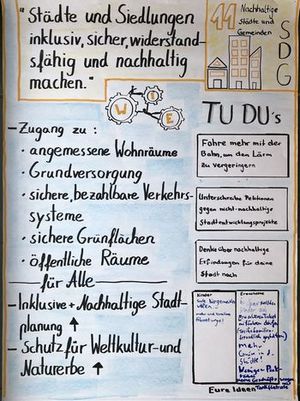 "Städte und Siedlungen
inklusiv, sicher, widerstands-
fähig und nachhaltig
machen."
11 Nachhaltige
Städte und
Gemeinden
SDG
W I E
TU DU's
– Zugang zu :
• angemessene Wohnräume
• Grundversorgung
• sichere, bezahlbare Verkehrs-
systeme
• sichere Grünflächen
• öffentliche Räume
für Alle
– Inklusive + Nachhaltige Stadt-
planung ↑
– Schutz für Weltkultur- und
Naturerbe ↑
Fahre mehr mit der
Bahn, um den Lärm
zu vergeringern
Unterschreibe Petitionen
gegen nicht-nachhaltige
Stadtentwicklungsprojekte
Denke über nachhaltige
Erfindungen für deine
Stadt nach
Kinder
Erwachsene
mehr
Grün in d.
Städte!
Weniger
Eure Ideen